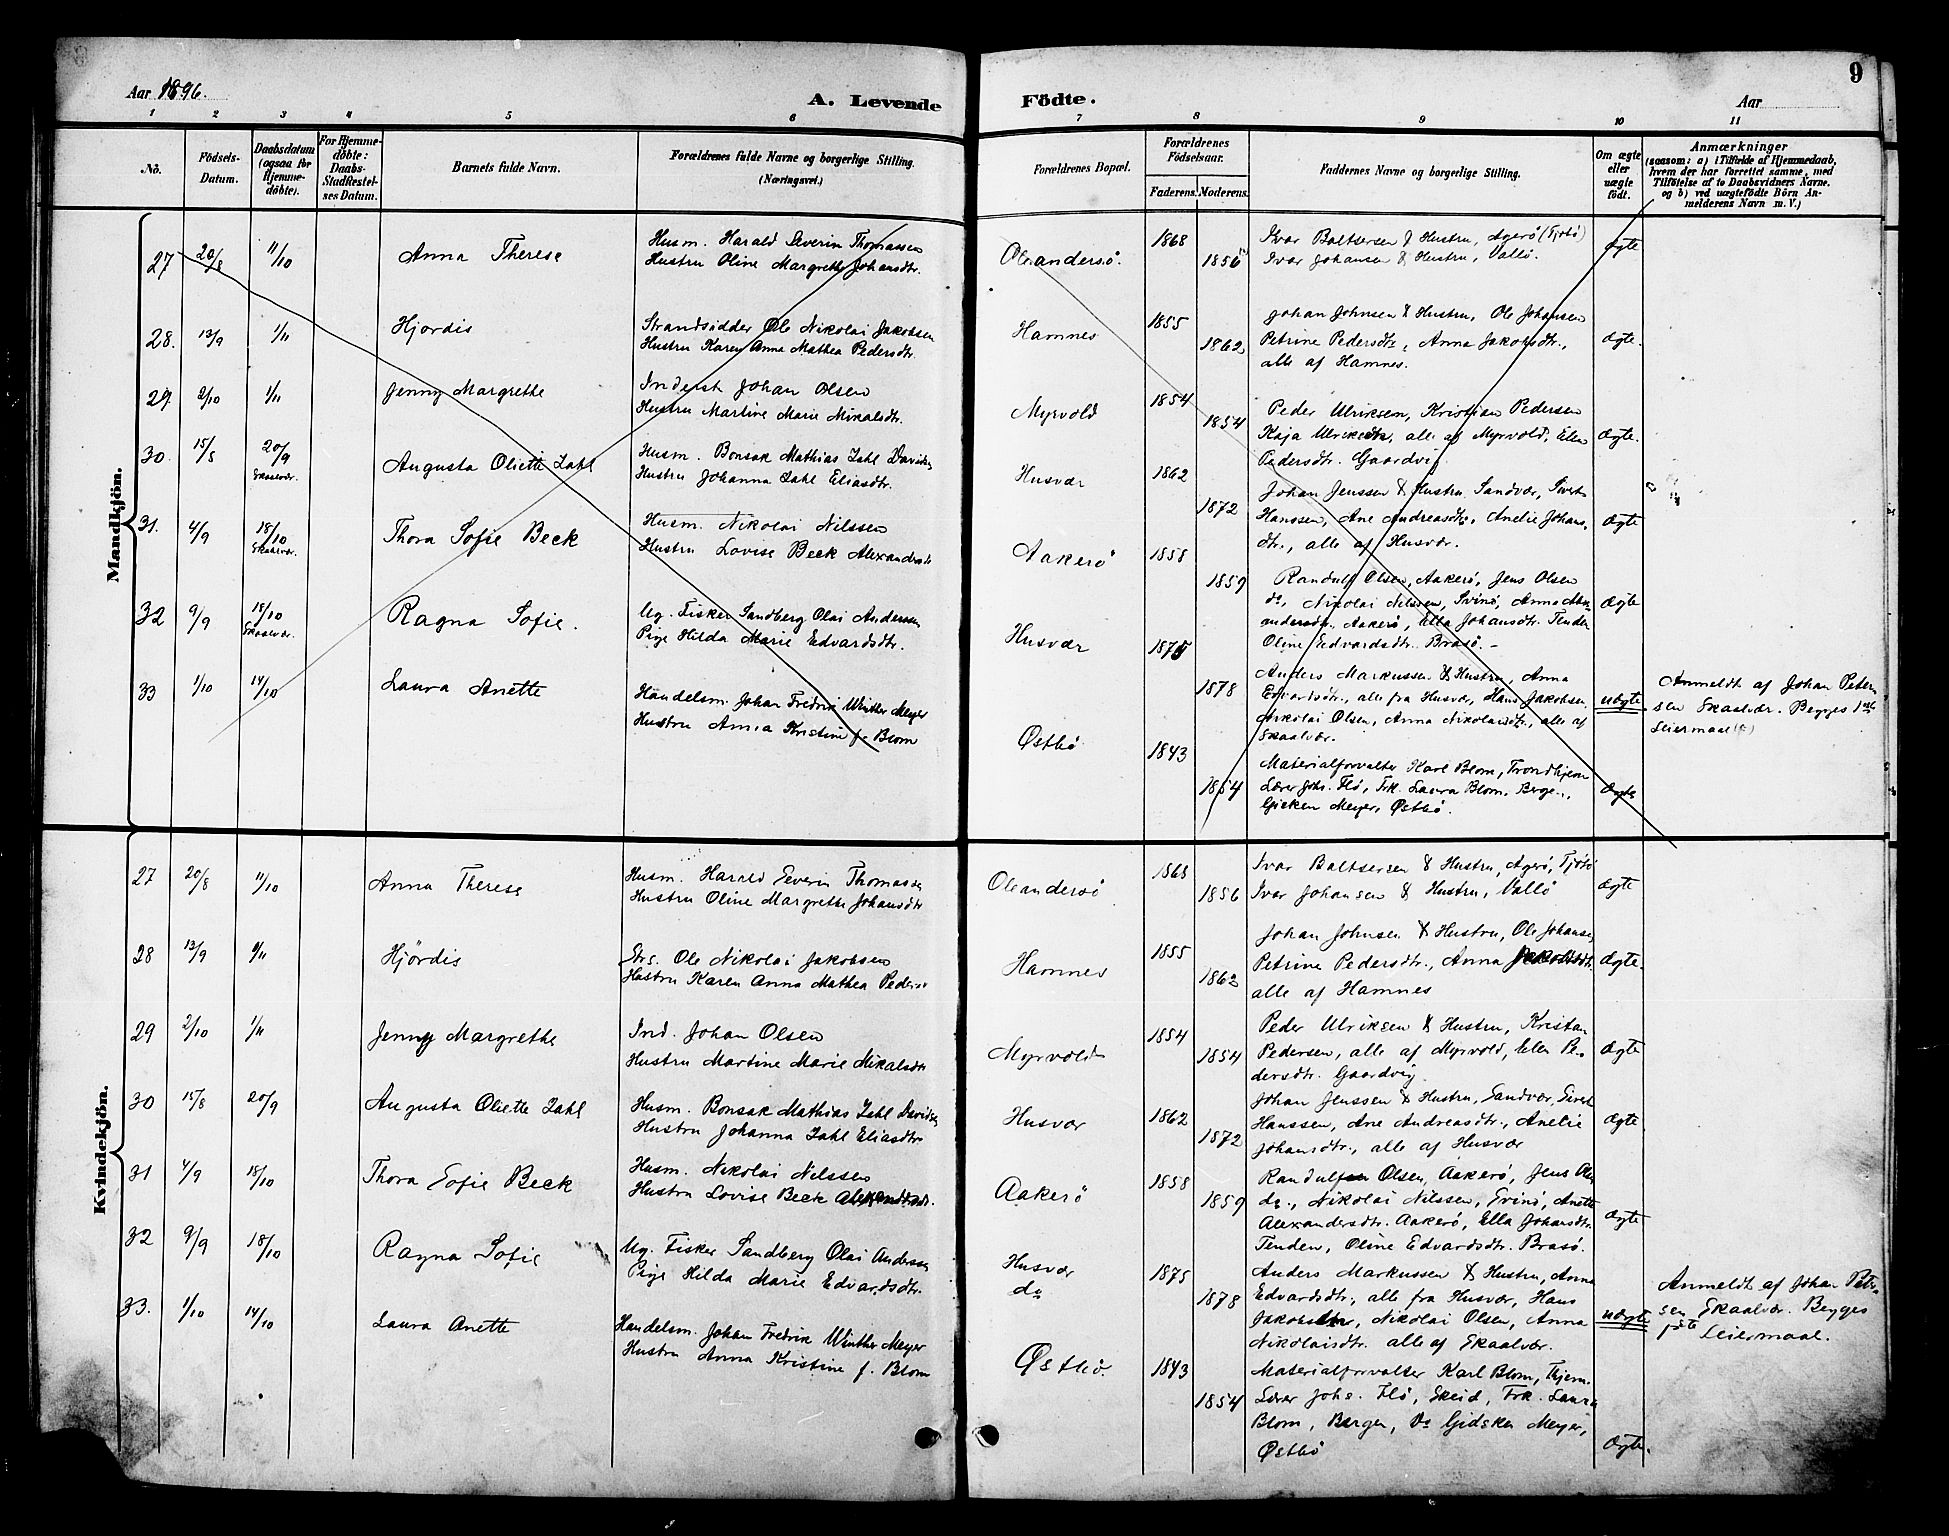 Aar 1896.
A. Levende Födte.
Aar
9
1 2 3 4 5 6 7 8 9 10 11
No.
Födsels-Datum.
Daabsdatum (ogsaa for Hjemmedöbte).
For Hjemmedöbte: Daabs-Stadfæstelses Datum.
Barnets fulde Navn.
Forældrenes fulde Navne og borgerlige Stilling. (Næringsvei.)
Forældrenes Bopæl.
Forældrenes Födselsaar.
Faderens. Moderens.
Faddernes Navne og borgerlige Stilling.
Om ægte eller uægte födt.
Anmærkninger
(saasom: a) i Tilfælde af Hjemmedaab, hvem der har forrettet samme, med Tilföielse af to Daabsvidners Navne. og b) ved uægtefödte Börn Anmelderens Navn m. V.)
Mandkjön.
27 20/8 11/10 Anna Therese
Husm. Harald Severin Thomassen
Hustru Oline Margrethe Johansdtr.
Oleandersö. 1868 1856
Ivar Baltsersen & Hustru, Agerö (Tjötö)
Ivar Johansen & Hustru, Vallö.
Ægte
28. 13/9 1/11 Hjordis
Strandsidder Ole Nikolai Jakobsen
Hustru Karen Anna Mathea Pedersdtr.
Hamnes 1855 1862
Johan Johnsen & Hustru, Ole Johansen
Petrine Pedersdtr, Anna Jakobsdtr.,
alle af Hamnes.
Ægte.
29. 2/10 1/11 Jenny Margrethe
Inderst Johan Olsen
Hustru Martine Marie Mikalsdtr.
Myrvold 1854 1854
Peder Ulriksen, Kristian Pedersen
Kaja Ulriksdtr, alle af Myrvold, Elen
Pedersdtr. Gaardvig
Ægte.
30. 15/8 20/9 Skaalvær. Augusta Oliette Zahl
Husm. Bonsak Mathias Zahl Davidsen
Hustru Johanna Zahl Eliasdtr.
Husvær 1862 1872
Johan Jenssen & Hustru, Sandvær, Sivert
Hanssen, Ane Andreasdtr, Anelie Johans-
dtr., alle af Husvær.
Ægte
31. 4/9 18/10 Skaalvær. Thora Sofie Beck
Husm. Nikolai Nilssen
Hustru Lovise Beck Alexandersdtr
Aakerö 1858 1859
Randulf Olsen, Aakerö, Jens Olsen
do, Nikolai Nilssen, Svinö, Anna Alex-
andersdtr. Aakerö, Ella Johansdtr. Tenden
Oline Edvardsdtr. Brasö.-
Ægte
32 9/9 18/10 Skaalvær. Ragna Sofie.
Ug. Fisker Sandberg Olai Anderssen
Pige Hilda Marie Edvardsdtr.
Husvær 1875 1878
Anders Markussen & Hustru, Anna
Edvardsdtr., alle fra Husvær, Hans Jakobsen,
Nikolai Olsen, Anna Nikolaisdtr., alle af
Skaalvær.
uægte
Anmeldt af Johan Peter-
sen Skaalvær. Begges 1ste
Leiermaal
33 1/10 14/10 Laura Anette
Handelsm. Johan Fredrik Winther Meyer
Hustru Anna Kristine f. Blom
Østbö 1843 1854
Materialforvalter Karl Blom, Trondhjem
Lærer Johs. Flö, Frk. Laura Blom, Bergen,
Gidsken Meyer, Østbö.
Ægte
Kvindekjön.
27 20/8 11/10 Anna Therese
Husm. Harald Severin Thomassen
Hustru Oline Margrethe Johansdtr
Oleandersö 1868 1856
Ivar Baltsersen & Hustru, Agerö, Tjötö
Ivar Johansen & Hustru, Vallö
Ægte
28 13/9 1/11 Hjördis
Strs. Ole Nikolai Jakobsen
Hustru Karen Anna Mathea Peders
Hamnes 1855 1862
Johan Johnsen & Hustru, Ole Johansen
Petrine Pedersdtr., Anna Jakobsdtr.
alle af Hamnes
Ægte.
29 2/10 1/11 Jenny Margrethe
Ind. Johan Olsen
Hustru Martine Marie Mikalsdtr
Myrvold 1854 1854
Peder Ulriksen & Hustru, Kristan
Pedersen, alle af Myrvold, Elen Pe-
dersdtr. Gaardvig.
Ægte
30 15/8 20/9 Augusta Oliette Zahl
Husm. Bonsak Mathias Zahl Davidsen
Hustru Johanna Zahl Eliasdtr
Husvær 1862 1872
Johan Jenssen & Hustru, Sandvær, Sivert
Hanssen, Ane Andreasdtr., Anelie
Johansdtr., alle af Husvær
Ægte
31 4/9 18/10 Thora Sofie Beck
Husm. Nikolai Nilssen
Hustru Lovise Beck Alexandersdtr.
Aakerö 1858 1859
Randulf Olsen, Aakerö, Jens Olsen
do., Nikolai Nilssen, Svinö, Anette
Alexandersdtr. Aakerö, Ella Johansdtr.
Tenden, Oline Edvardsdtr. Brasö.
Ægte
32 9/9 18/10 Ragna Sofie
Ug. Fisker Sandberg Olai Anderssen
Pige Hilda Marie Edvardsdtr.
Husvær do 1875 1878
Anders Markussen & Hustru, Anna
Edvardsdtr., alle fra Husvær, Hans
Jakobsen, Nikolai Olsen, Anna
Nikolaisdtr. alle af Skaalvær.
uægte
Anmeldt af Johan Peter-
sen Skaalvær. Begges
1ste Leiermaal.
33. 1/10 14/10 Laura Anette
Handelsm. Johan Fredrik Winther Meyer
Hustru Anna Kristine f. Blom
Østbö. 1843 1854
Materialforvalter Karl Blom, Thjem.
Lærer Johs. Flö, Skeid, Frk. Laura
Blom, Bergen, Do Gidsken Meyer,
Østbö
Ægte.